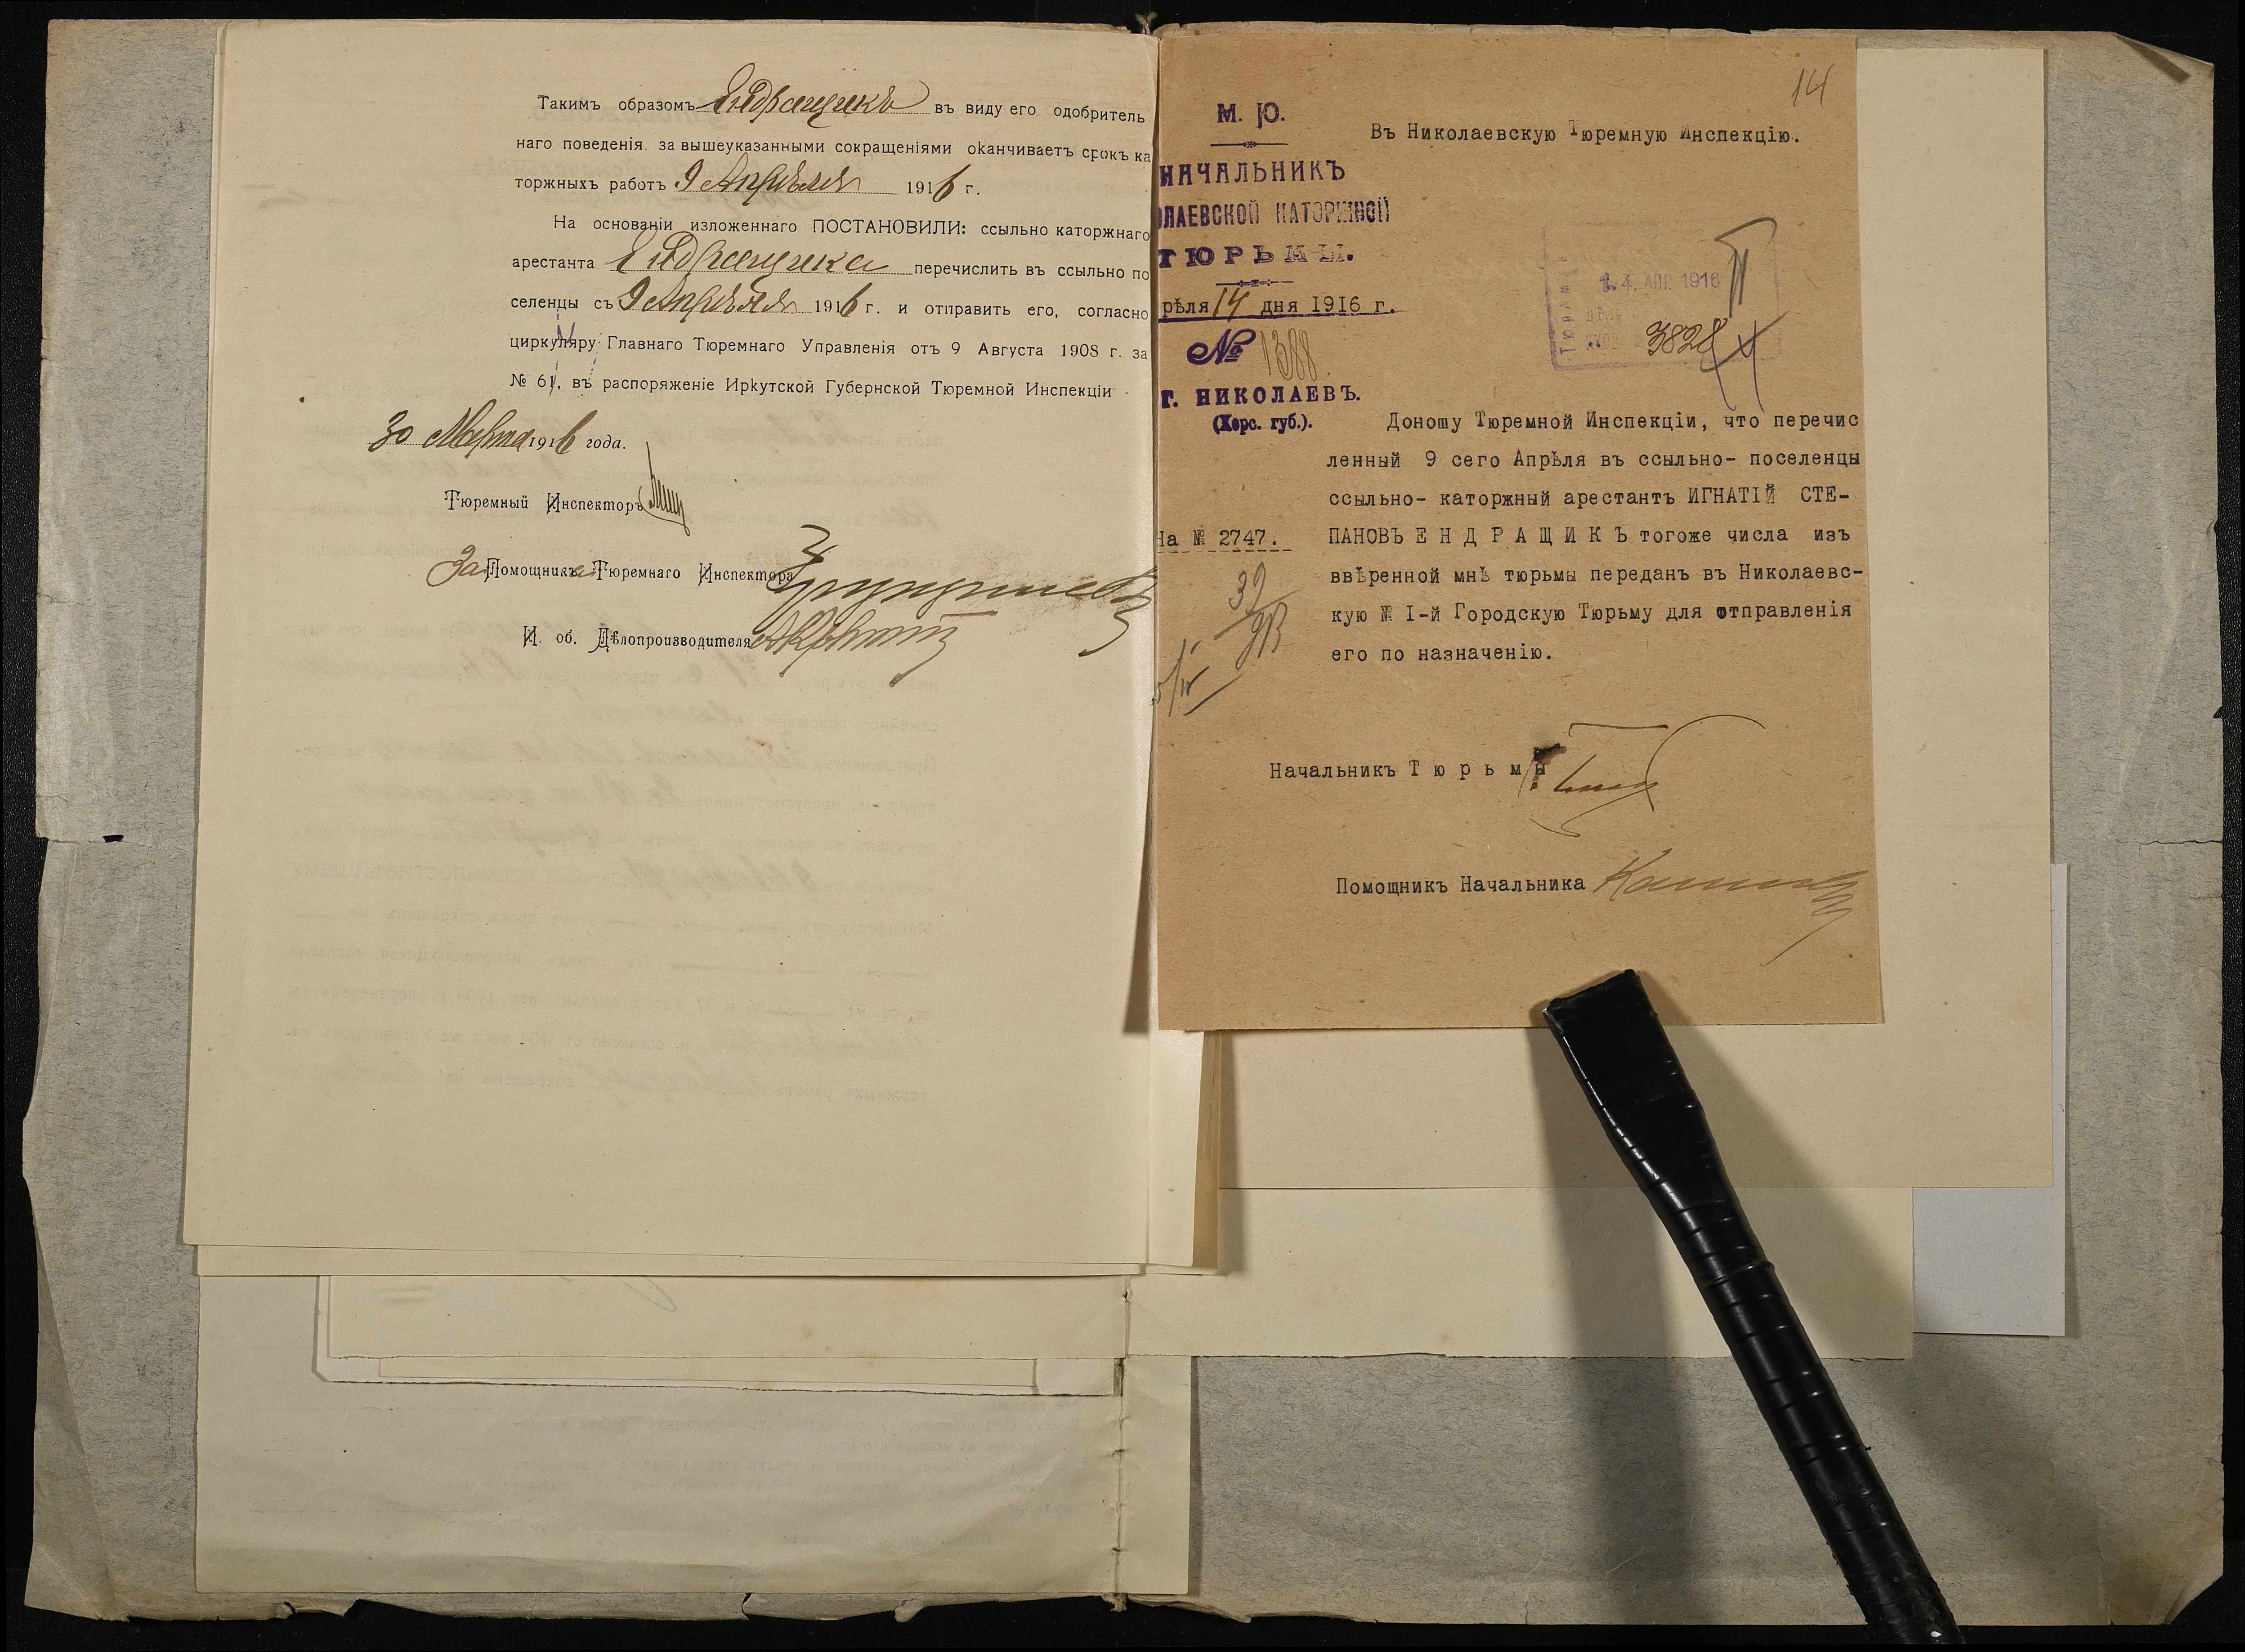 Такимъ образомъ Ендращикъ въ виду его одобритель
наго поведенія за вышеуказанными сокращеніями оканчиваетъ срокъ ка
торжныхъ работъ 9 Апрѣля 1916 г.
На основаніи изложеннаго ПОСТАНОВИЛИ: ссыльно каторжнаго
арестанта Ендращика перечислить въ ссыльно по
селенцы съ 9 Апрѣля 1916 г. и отправить его, согласно
циркуляру Главнаго Тюремнаго Управленія отъ 9 Августа 1908 г. за
№ 61, въ распоряженіе Иркутской Губернской Тюремной Инспекціи
30 Марта 1916 года.
Тюремный Инспекторъ
За Помощника Тюремнаго Инспектора
И. об. Дѣлопроизводителя
14
М. Ю.
НАЧАЛЬНИКЪ
ОЛАЕВСКОЙ КАТОРЖНОЙ
ТЮРЬМЫ.
рѣля 14 дня 1916 г.
№ 1388.
Г. НИКОЛАЕВЪ.
(Херс. губ.).
На № 2747.
Въ Николаевскую Тюремную Инспекцію.
14 АПР. 1916
3828
Доношу Тюремной Инспекціи, что перечис
ленный 9 сего Апрѣля въ ссыльно- поселенцы
ссыльно- каторжный арестантъ ИГНАТІЙ СТЕ-
ПАНОВЪ Е Н Д Р А Щ И К Ъ тогоже числа изъ
ввѣренной мнѣ тюрьмы переданъ въ Николаевс-
кую № I-й Городскую Тюрьму для отправленія
его по назначенію.
Начальникъ Т ю р ь м ы
Помощникъ Начальника